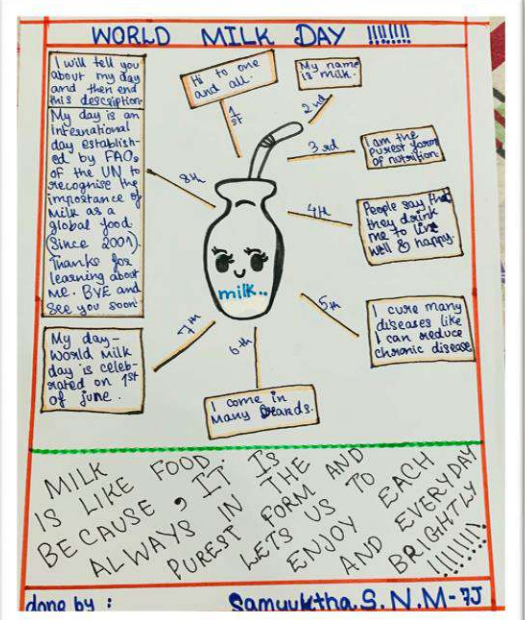 WORLD MILK DAY !!!!!!!
Hi to one
and all.
1st
My name
is milk.
2nd
I am the
purest form
of nutrition.
3rd
People say that
they drink
me to live
well & happy.
4th
I cure many
diseases like
I can reduce
chronic disease
5th
I come in
Many Brands.
6th
My day -
World Milk
day is celeb-
rated on 1st
of june.
7th
I will tell you
about my day
and then end
this description.
My day is an
International
day establish-
ed by FAO,
of the UN to
recognise the
importance of
Milk as a
global food
(Since 2001).
Thanks for
learning about
me. BYE and
see you soon!
8th
milk..
MILK
IS LIKE FOOD.
BECAUSE, IT IS
ALWAYS IN THE
PUREST FORM AND
LETS US TO
ENJOY EACH
AND EVERYDAY
BRIGHTLY
!!!!!!!!
done by : Samyuktha.S.N.M-7J